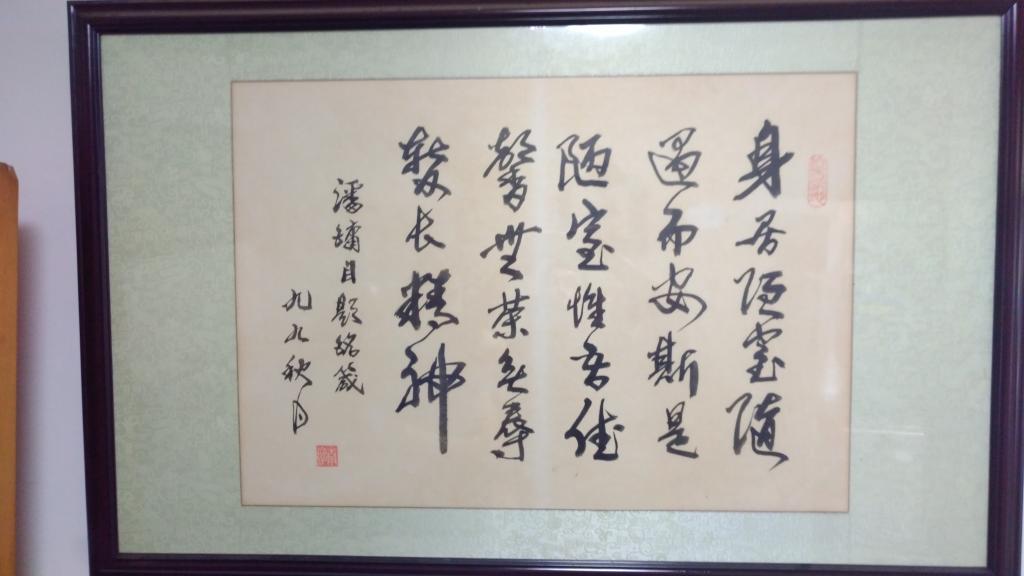 身居陋室随
遇而安斯是
陋室惟吾德
馨世荣无辱
发长精神
自题铭箴
九九秋月